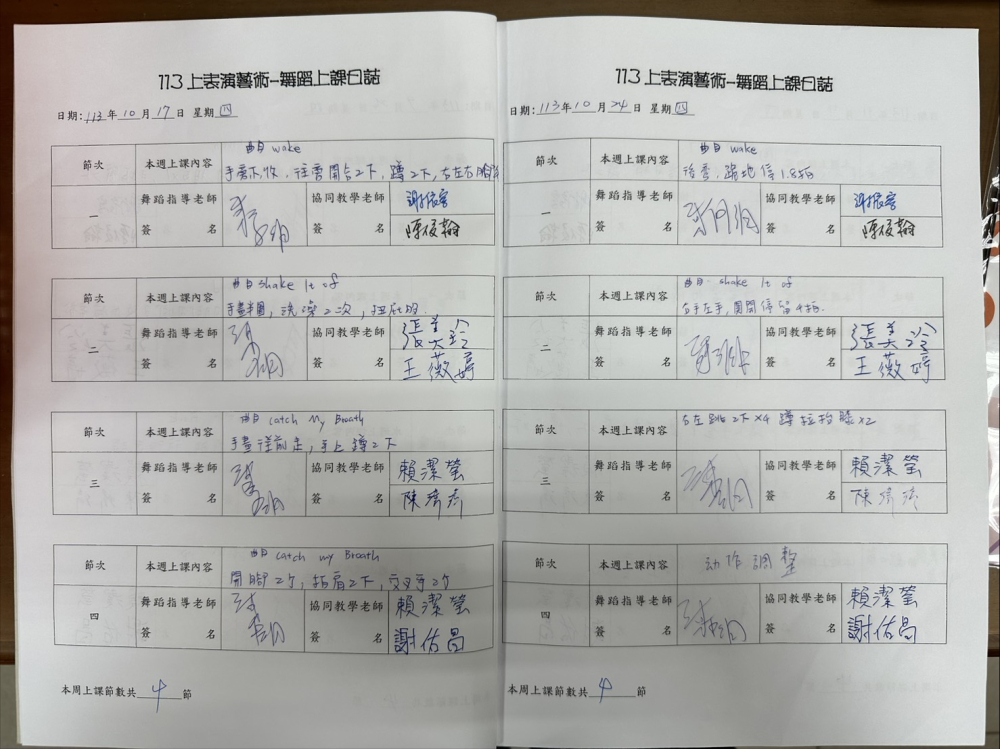 113上表演藝術-舞蹈上課日誌
日期:113年10月17日 星期四
節次 本週上課內容 曲目 wake
手旁不收,往旁開點2下,蹲2下,右左右胸
一 舞蹈指導老師簽名 協同教學老師簽名 謝振宏
陳俊翰
節次 本週上課內容 曲目 shake It of
手畫半圓,洗澡2次,
二 舞蹈指導老師簽名 協同教學老師簽名 張美玲
王薇婷
節次 本週上課內容 曲目 catch My Breath
手畫往前走,手上蹲2下
三 舞蹈指導老師簽名 協同教學老師簽名 賴潔瑩
陳
節次 本週上課內容 曲目 catch my Breath
開腳2個,拍肩2下,交叉手2個
四 舞蹈指導老師簽名 協同教學老師簽名 賴潔瑩
謝佑昌
本周上課節數共4節
113上表演藝術-舞蹈上課日誌
日期:113年10月24日 星期四
節次 本週上課內容 曲目 wake
跪地停1.8拍
一 舞蹈指導老師簽名 協同教學老師簽名 謝振宏
陳俊翰
節次 本週上課內容 曲目 shake It of
右手左手,圓開停留4拍.
二 舞蹈指導老師簽名 協同教學老師簽名 張美玲
王薇婷
節次 本週上課內容 右左跳2下×4 蹲拉抬腿×2
三 舞蹈指導老師簽名 協同教學老師簽名 賴潔瑩
陳
節次 本週上課內容 动作調整
四 舞蹈指導老師簽名 協同教學老師簽名 賴潔瑩
謝佑昌
本周上課節數共4節